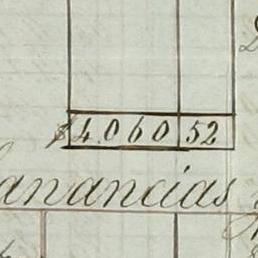 $4060 52
anancias